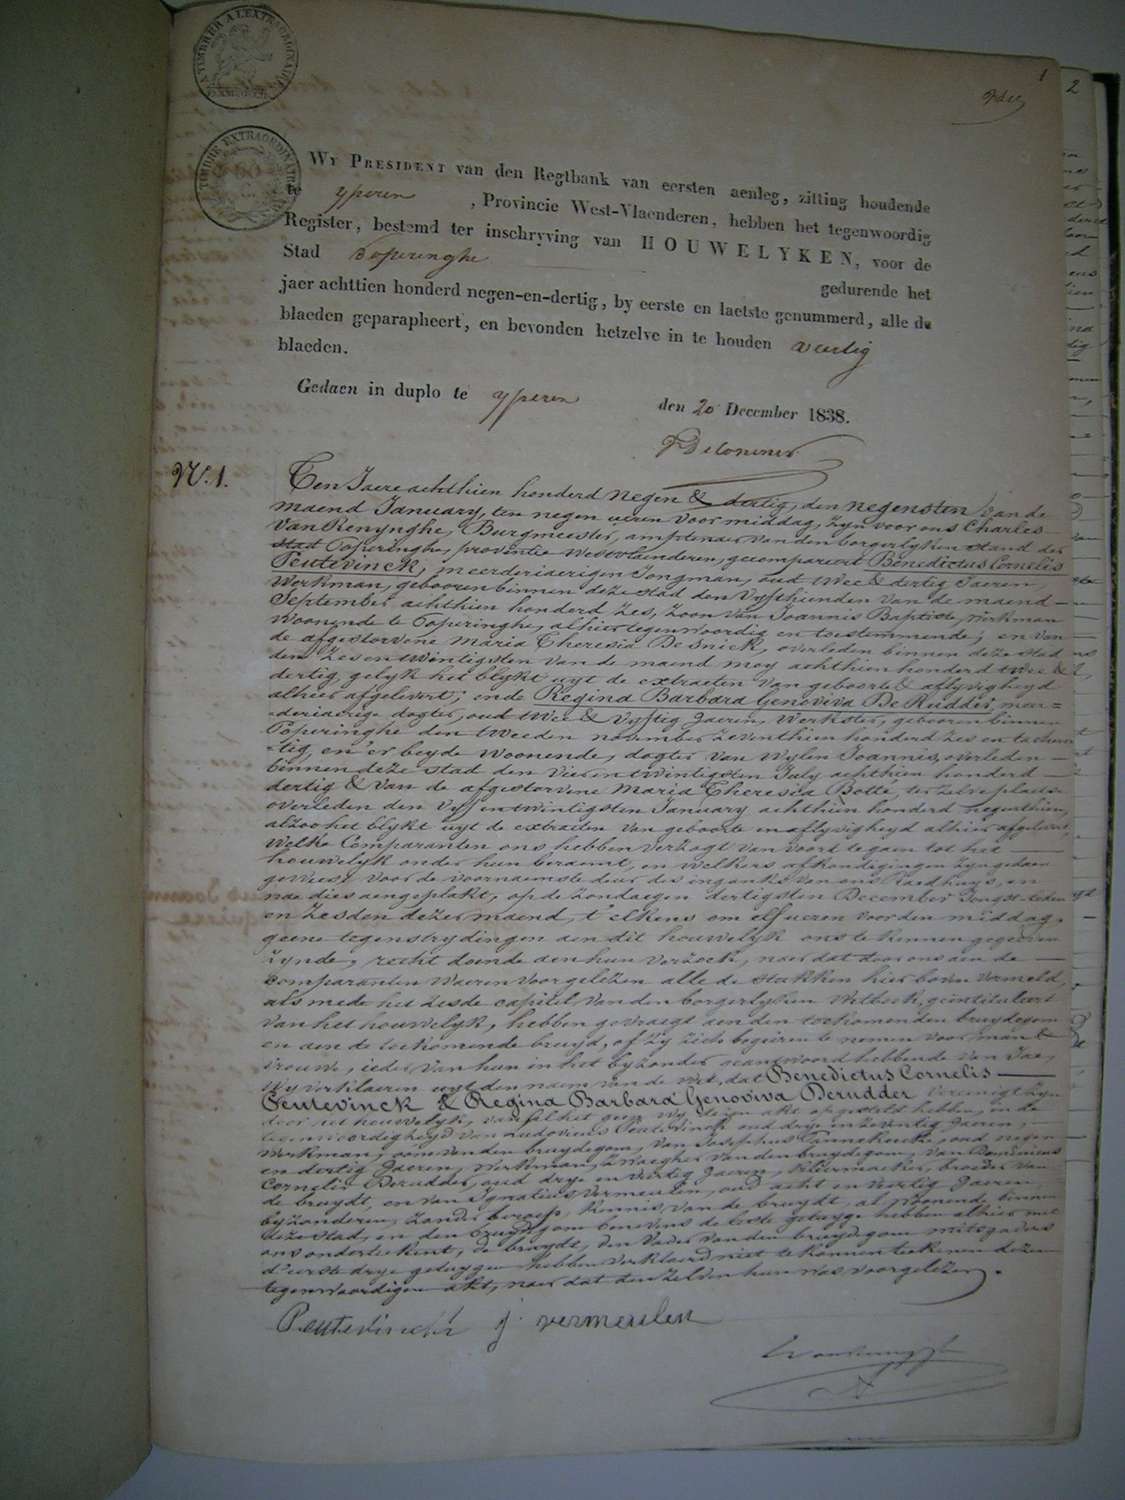 A TIMBRER A L'EXTRAORDINAIRE
TIMBRE EXTRAORDINAIRE
1
2
WY PRESIDENT van den Regtbank van eersten aenleg, zitting houdende
te yperen , Provincie West-Vlaenderen, hebben het tegenwoordig
Register, bestemd ter inschryving van HOUWELYKEN, voor de
Stad Poperinghe gedurende het
jaer achttien honderd negen-en-dertig, by eerste en laetste genummerd, alle de
blaeden geparapheert, en bevonden hetzelve in te houden veertig
blaeden.
Gedaen in duplo te yperen den 20 December 1838.
N.1. Ten Jaere achthien honderd negen & dertig, den negensten van de
maend January, ten negen ueren voor middag, zyn voor ons Charles
Van Renynghe, Burgmeester, amptenaer van den borgerlyken stand der
stad Poperinghe, provintie Westvlaenderen, gecompareert Benedictus Cornelis
Peutevinck, meerderjaerigen Jongman, oud twee & dertig Jaeren,
Werkman, gebooren binnen deze stad den Vyfthienden van de maend
September achthien honderd zes, zoon van Joannis Baptiste, Werkman
woonende te Poperinghe, alhier tegenwoordig en toestemmende; en van
de afgestorvene Maria Theresia De Snick, overleden binnen deze stad
den zes en twintigsten van de maend mey achthien honderd twee &
dertig, gelyk het blykt uyt de extracten van geboorte & aflyvigheyd
alhier afgelevert; ende Regina Barbara Genoviva De Rudder, meer=
=derjaerige dogter, oud twee & vyftig Jaeren, Werkster, gebooren binnen
Poperinghe den tweeden november zeventhien honderd zes en tachen=
=tig, en er beyde woonende, dogter van Wylen Joannis, overleden
binnen deze stad den vier en twintigsten July achthien honderd
dertig & van de afgestorvene Maria Theresia Botte, ter zelve plaetse
overleden den vyf en twintigsten January achthien honderd negenthien,
alzoo het blykt uyt de extracten van geboorte en aflyvigheyd alhier afgelevert,
Welke Comparanten ons hebben verzogt van voort te gaen tot het
houwelyk onder hun beraemt, en welkers afkondigingen zyn gedaen
geweest voor de voornaemste deur des ingangs van ons Raedhuys, en
naer dies aengeplakt, op de zondaegen dertigsten December Jongst leden
en zesden dezer maend, t'elkens om elf ueren voor den middag,
geene tegenstrydingen aen dit houwelyk ons te kennen gegeven
zynde, recht doende aen hun verzoek, naer dat door ons aen de
comparanten waeren voorgelezen alle de stukken hier boven vermeld,
als mede het zesde capitel van den borgerlyken wetboek, geintituleert
van het houwelyk, hebben gevraegt aen den toekomenden bruydegom
en aen de toekomende bruyd, of zy zich begeiren te nemen voor man &
vrouwe, ieder van hun in het byzonder geantwoord hebbende van Jae,
Wy verklaeren uyt den naem van de Wet, dat Benedictus Cornelis
Peutevinck & Regina Barbara Genoviva Derudder vereenigt zyn
door het houwelyk, van al het geen wy dezen akt opgesteld hebben, in de
tegenwoordigheyd van Ludovicus Peutevinck oud drye en zeventig Jaeren,
Werkman, oom van den bruydegom, van Josephus oud negen
en dertig Jaeren, Werkman, zwaegher van den bruydegom, van Dominicus
Cornelis Derudder, oud drye en veertig Jaeren, kleermaeker, broeder van
de bruydt, en van Ignatius Vermeulen, oud acht en veertig Jaeren,
byzonderen, zonder beroep, kennis van de bruydt, al woonende binnen
deze stad, en den bruydegom benevens de leste getuyge hebben alhier met
ons onderteekent, de bruydt, den vader van den bruydegom mitsgaders
d'eerste drye getuygen hebben verklaerd niet te konnen teekenen dezen
tegenwoordigen akt, naer dat den zelven hun was voorgelezen.
Peutevinck j vermeulen